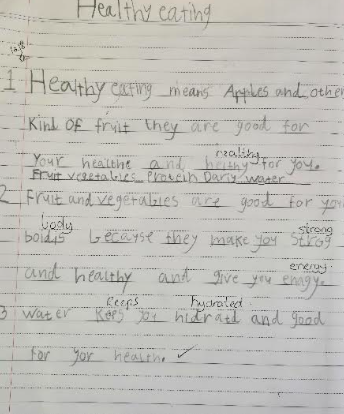 Healthy eating
1 Healthy eating means Apples and other
Kind of fruit they are good for
reality
Your healthe and heithy for you.
Fruit vegetables Protein Dariy water
2 Fruit and vegetables are good for you
body strong
boidis because they make you strog
energy
and healthy and give you enagy.
keeps hydrated
3 water kees you hidratd and good
for yor health. ✓